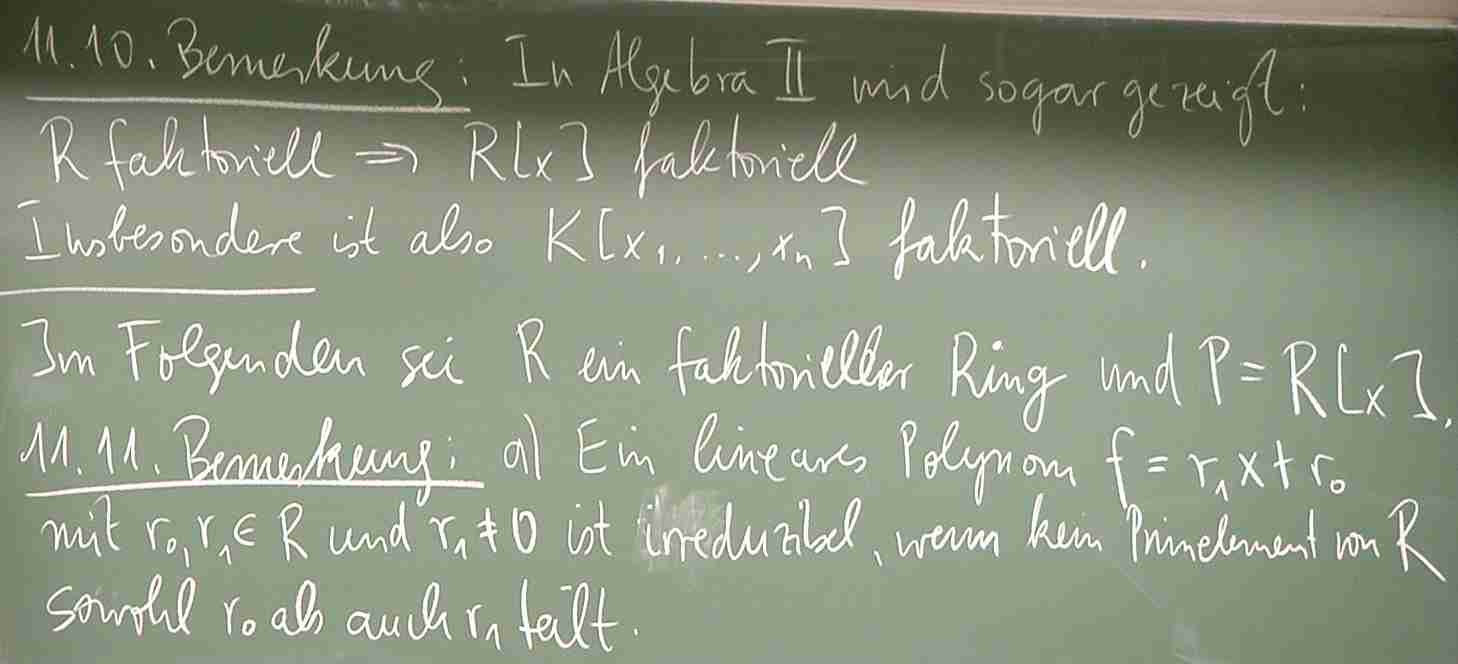 11.10. Bemerkung: In Algebra II wird sogar gezeigt:
R faktoriell ⇒ R[x] faktoriell
Insbesondere ist also K[x₁, ..., xₙ] faktoriell.
Im Folgenden sei R ein faktorieller Ring und P = R[x].
11.11. Bemerkung: a) Ein lineares Polynom f = r₁x + r₀
mit r₀, r₁ ∈ R und r₁ ≠ 0 ist irreduzibel, wenn kein Primelement von R
sowohl r₀ als auch r₁ teilt.